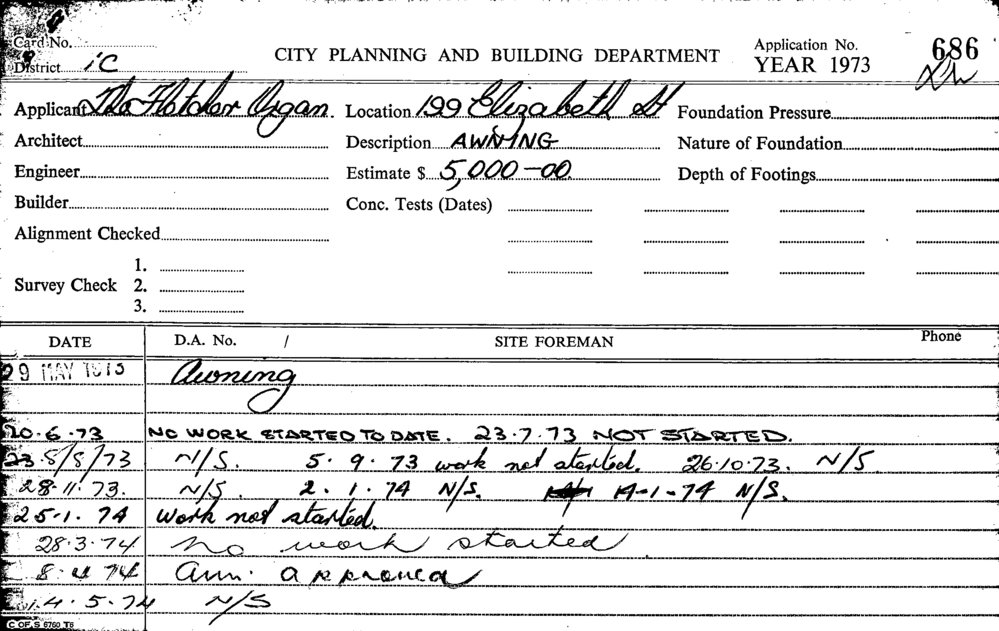 Card No.
CITY PLANNING AND BUILDING DEPARTMENT
Application No. 686
YEAR 1973
District 1C
Applicant The Fletcher Organ. Location 199 Elizabeth St Foundation Pressure
Architect Description AWNING Nature of Foundation
Engineer Estimate $ 5,000-00 Depth of Footings
Builder Conc. Tests (Dates)
Alignment Checked
Survey Check 1.
2.
3.
DATE D.A. No. / SITE FOREMAN Phone
29 MAY 1973 Awning
20.6.73 NO WORK STARTED TO DATE. 23.7.73 NOT STARTED.
8/8/73 N/S. 5.9.73 work not started. 26.10.73. N/S
28.11.73. N/S. 2.1.74 N/S. 14-1-74 N/S.
25.1.74 work not started.
28.3.74 no work started
8.4.74 Am. approved
14.5.74 N/S
C OF S 6760 T6